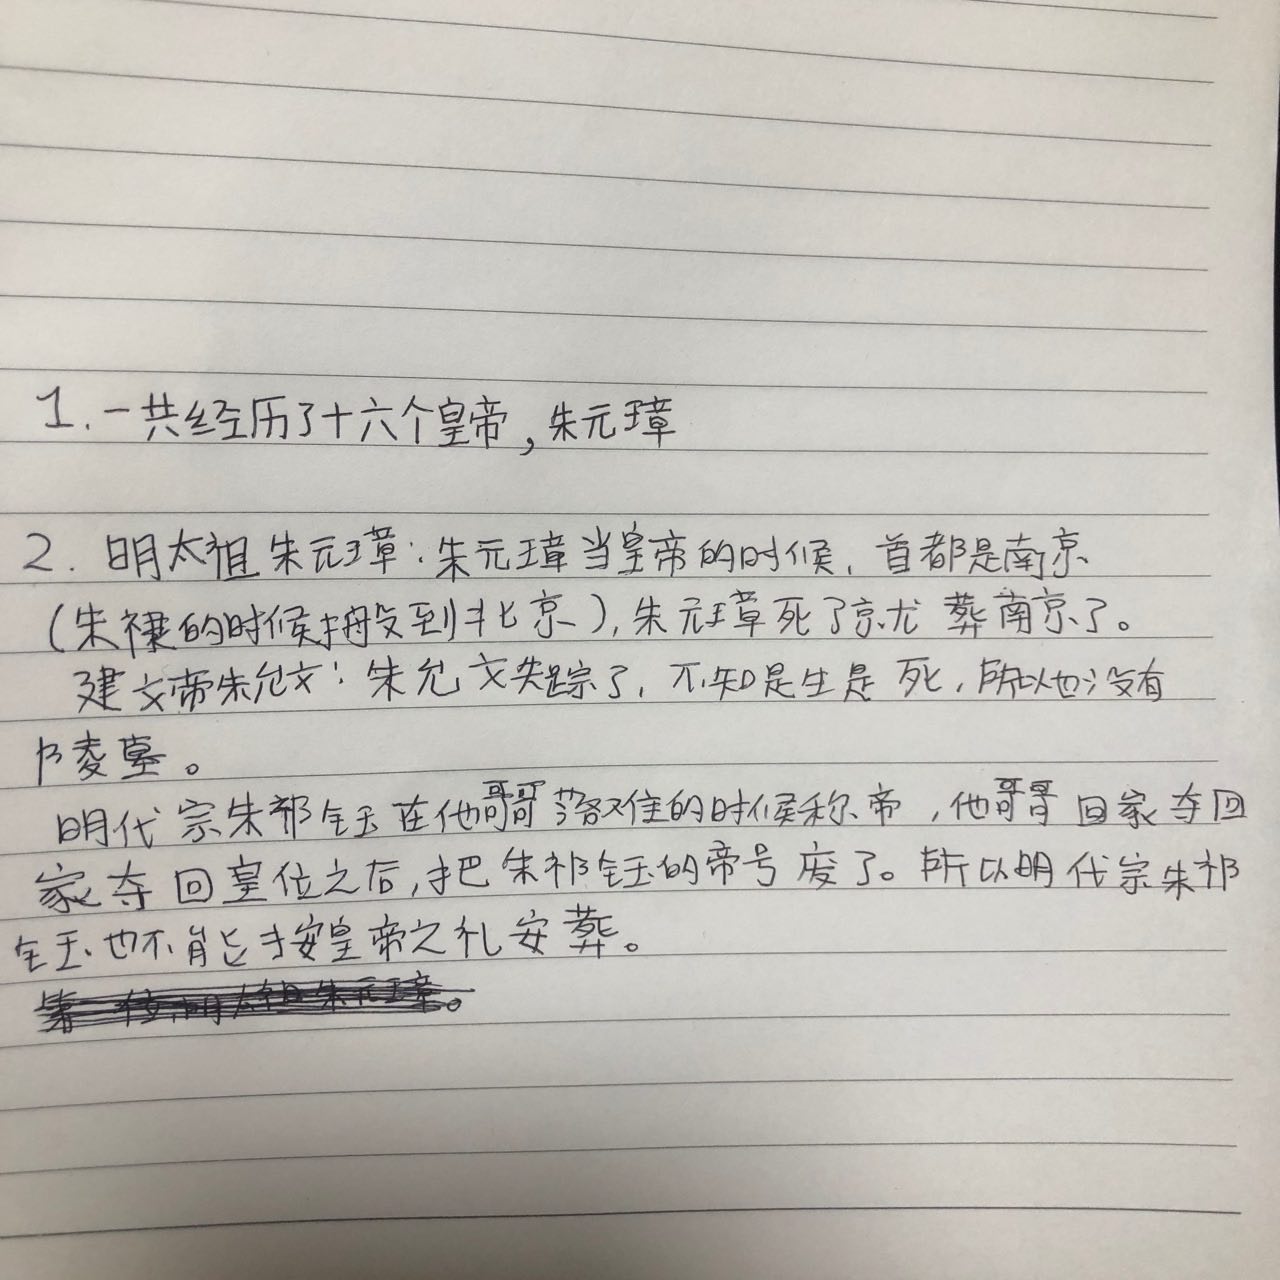 1. 一共经历了十六个皇帝,朱元璋
2. 明太祖朱元璋:朱元璋当皇帝的时候,首都是南京
(朱棣的时候搬到北京),朱元璋死了就葬南京了。
建文帝朱允文:朱允文失踪了,不知是生是死,所以也没有
陵墓。
明代宗朱祁钰在他哥哥落难的时候称帝,他哥哥回家夺回
家夺回皇位之后,把朱祁钰的帝号废了。所以明代宗朱祁
钰也不能按皇帝之礼安葬。